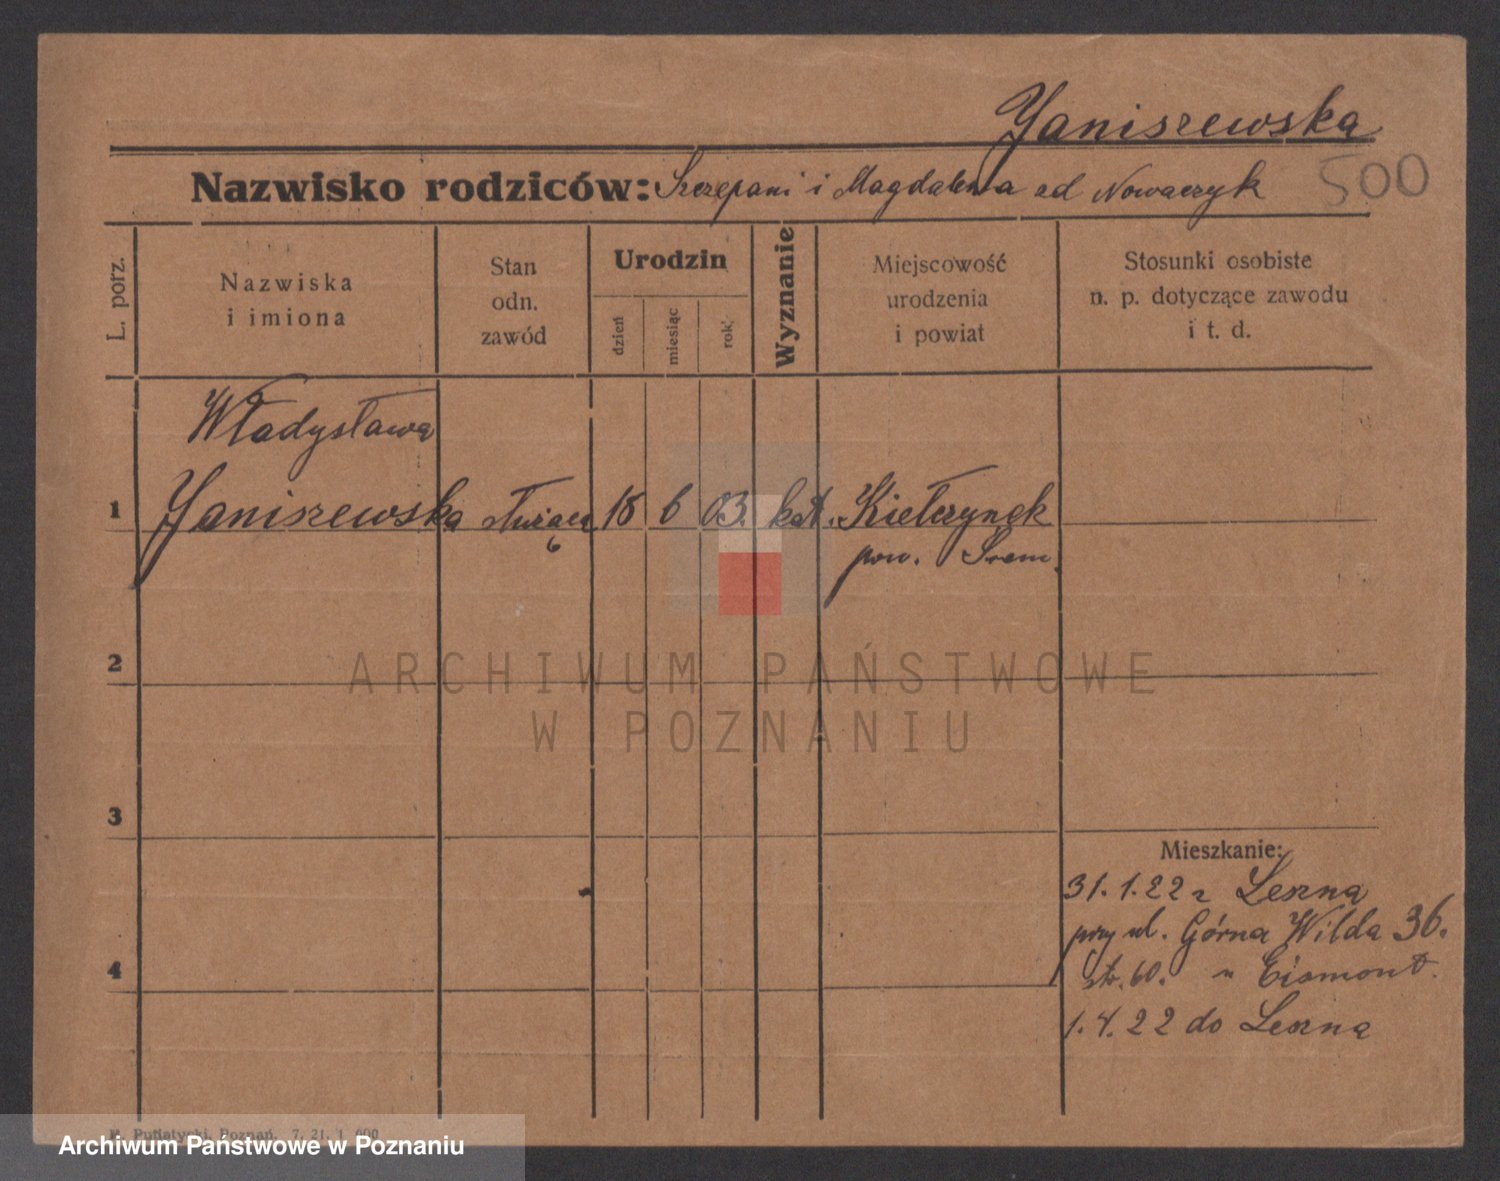 Janiszewska
Nazwisko rodziców: Szczepani i Magdalena zd Nowaczyk
500
L. porz.
Nazwiska
i imiona
Stan
odn.
zawód
Urodzin
dzień
miesiąc
rok
Wyznanie
Miejscowość
urodzenia
i powiat
Stosunki osobiste
n. p. dotyczące zawodu
i t. d.
Władysława
1 Janiszewska służąca 18 6 03. kat. Kiełczynek
pow. Śrem.
2
3
4
Mieszkanie:
31.1.22 z Leszna
przy ul. Górna Wilda 36.
str. 60. u Eismont.
1.4.22 do Leszna
ARCHIWUM PAŃSTWOWE
W POZNANIU
Poznań. 7. 21. 1 000
Archiwum Państwowe w Poznaniu